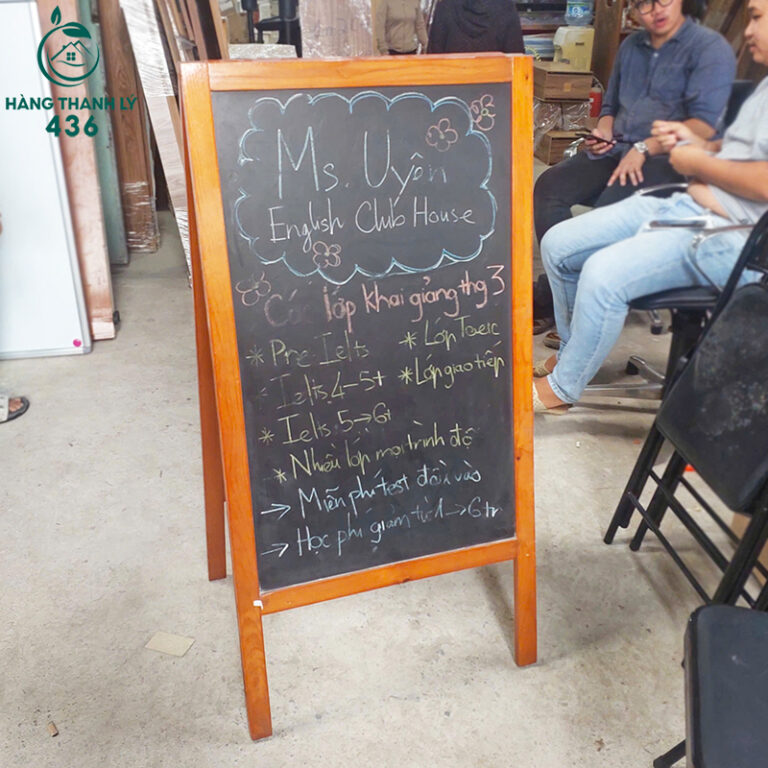 HÀNG THANH LÝ
436
Ms. Uyên
English Club House
Các lớp khai giảng thg 3
* Pre Ielts
* Lớp Toeic
Ielts 4-5+
* Lớp giao tiếp
* Ielts 5→6+
* Nhiều lớp mọi trình độ
→ Miễn phí test đầu vào
→ Học phí giảm từ 1→6tr